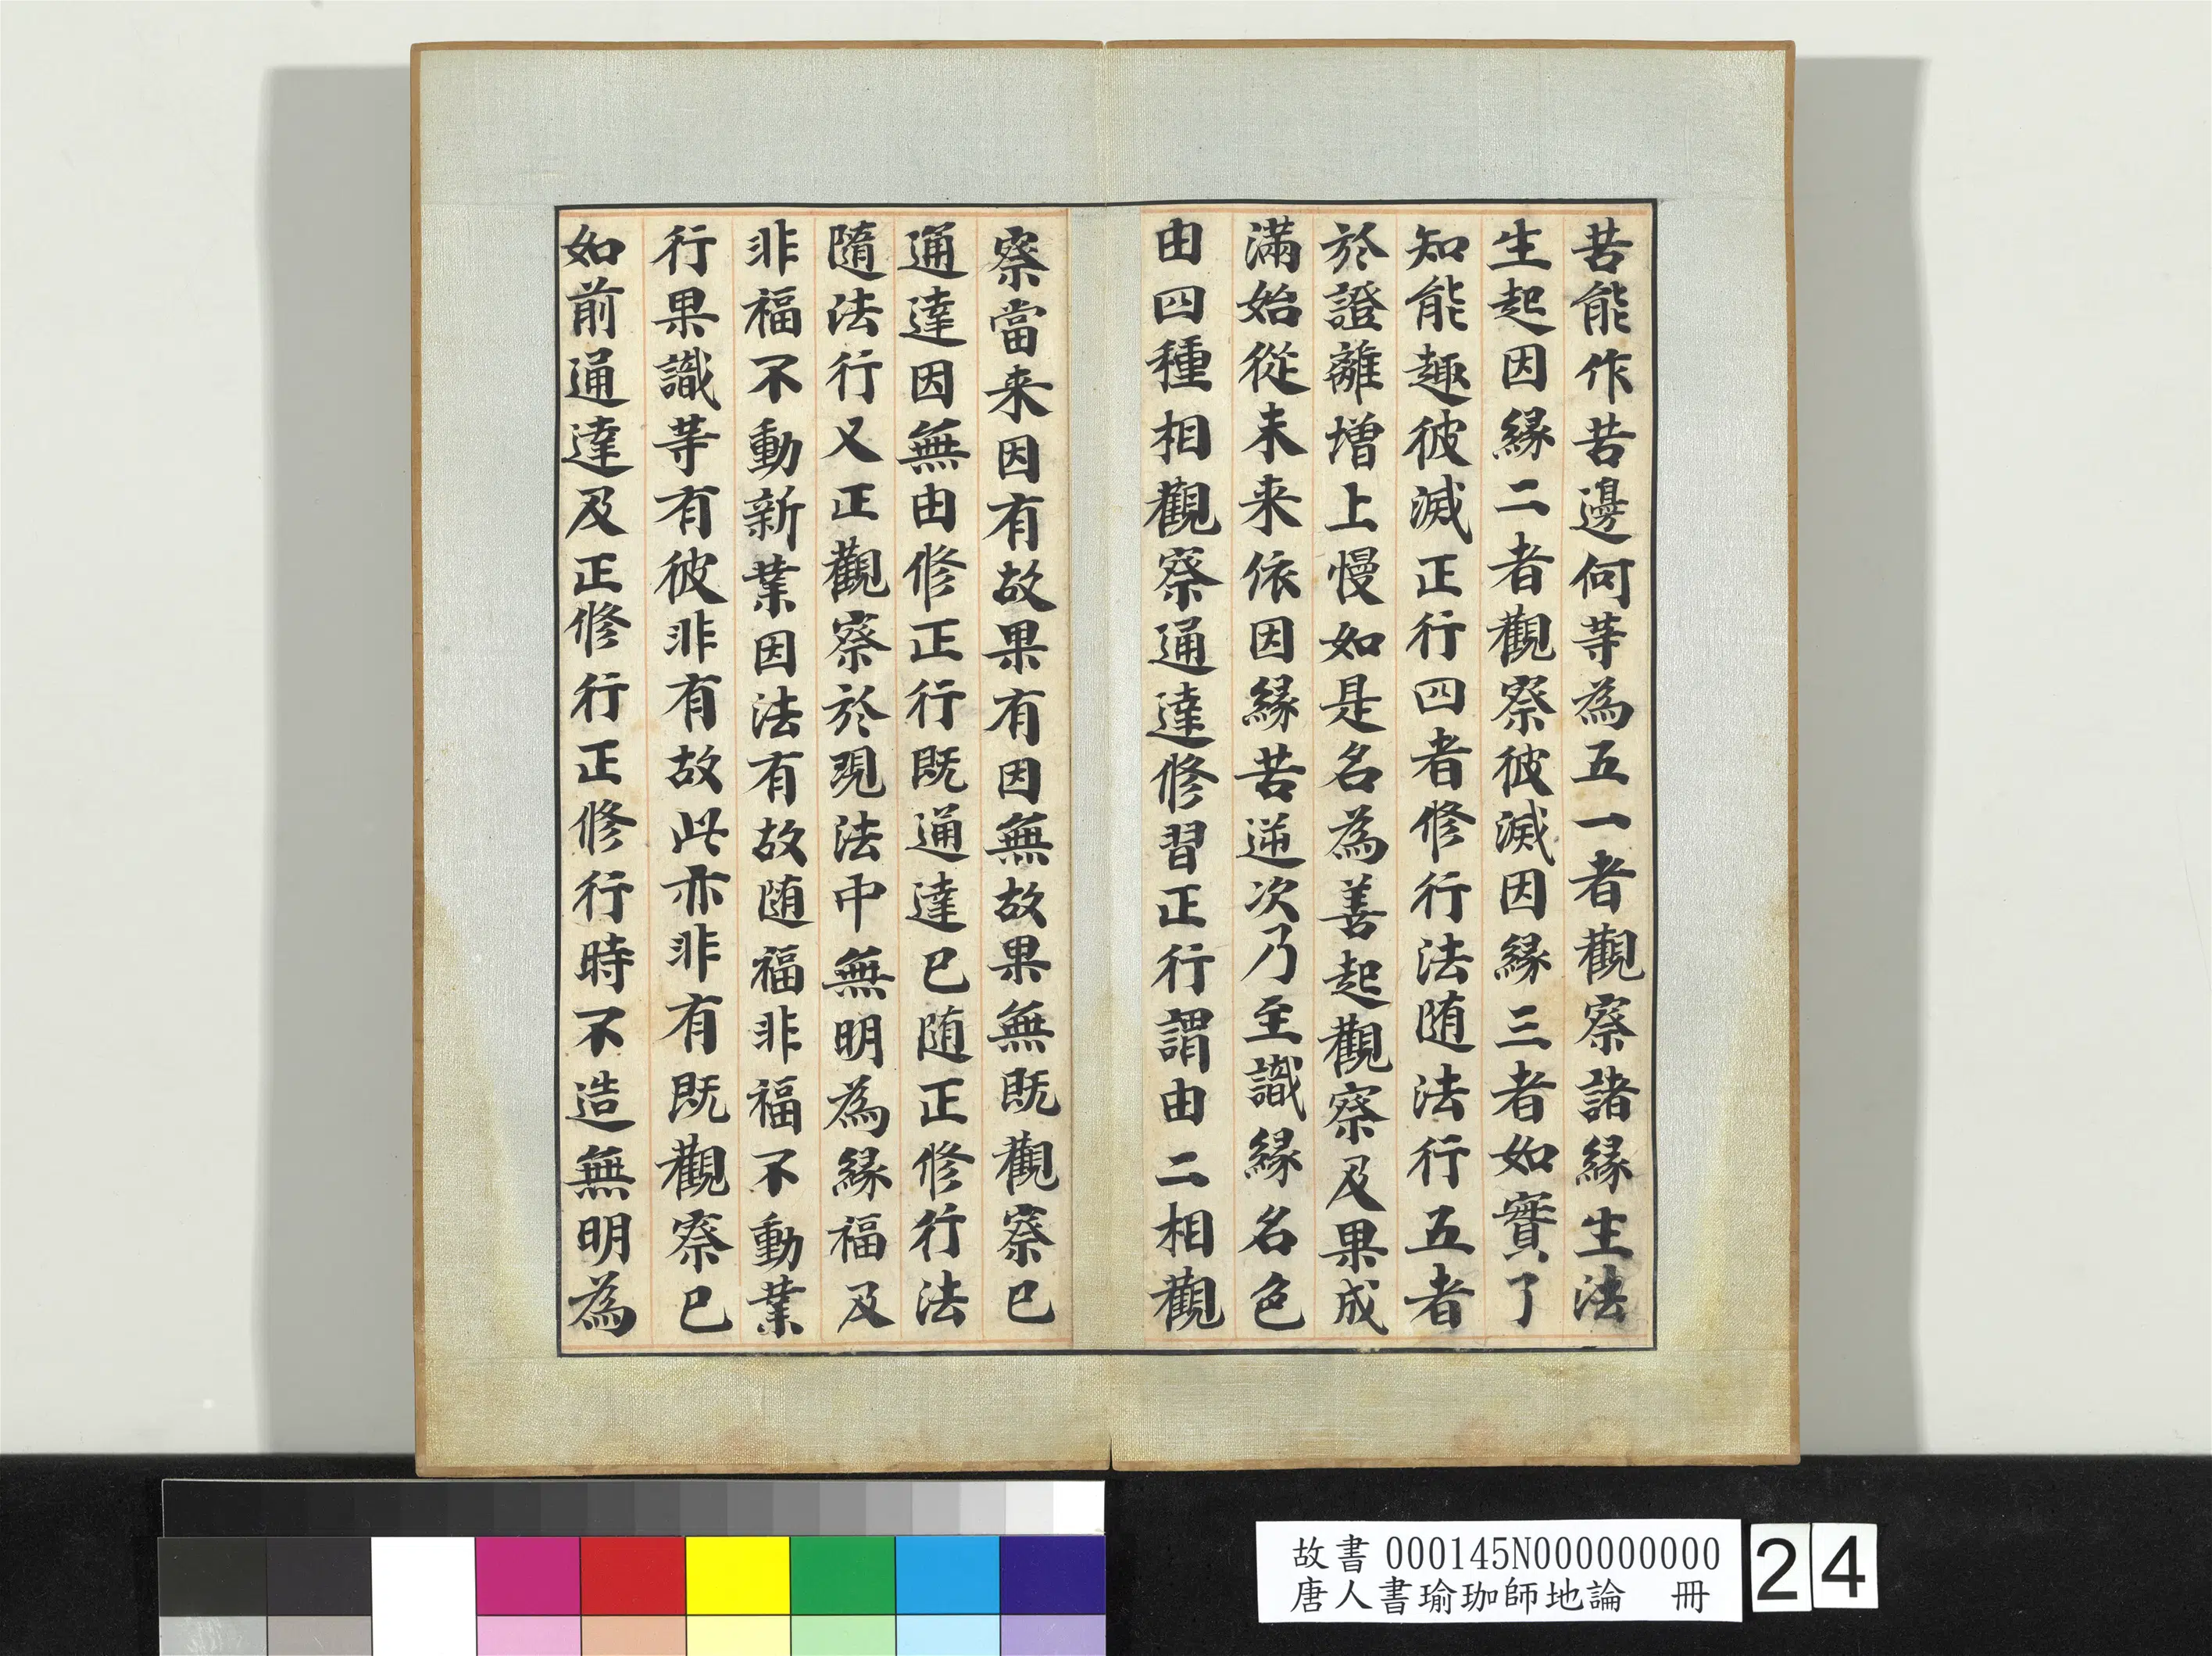 苦能作苦邊何等為五一者觀察諸緣生法
生起因緣二者觀察彼滅因緣三者如實了
知能趣彼滅正行四者修行法随法行五者
於證離增上慢如是名為善起觀察及果成
滿始從未来依因緣苦逆次乃至識緣名色
由四種相觀察通達修習正行謂由二相觀
察當来因有故果有因無故果無既觀察已
通達因無由修正行既通達已随正修行法
隨法行又正觀察於現法中無明為緣福及
非福不動新業因法有故随福非福不動業
行果識等有彼非有故此亦非有既觀察已
如前通達及正修行正修行時不造無明為
故書 000145N000000000
唐人書瑜珈師地論 冊
24